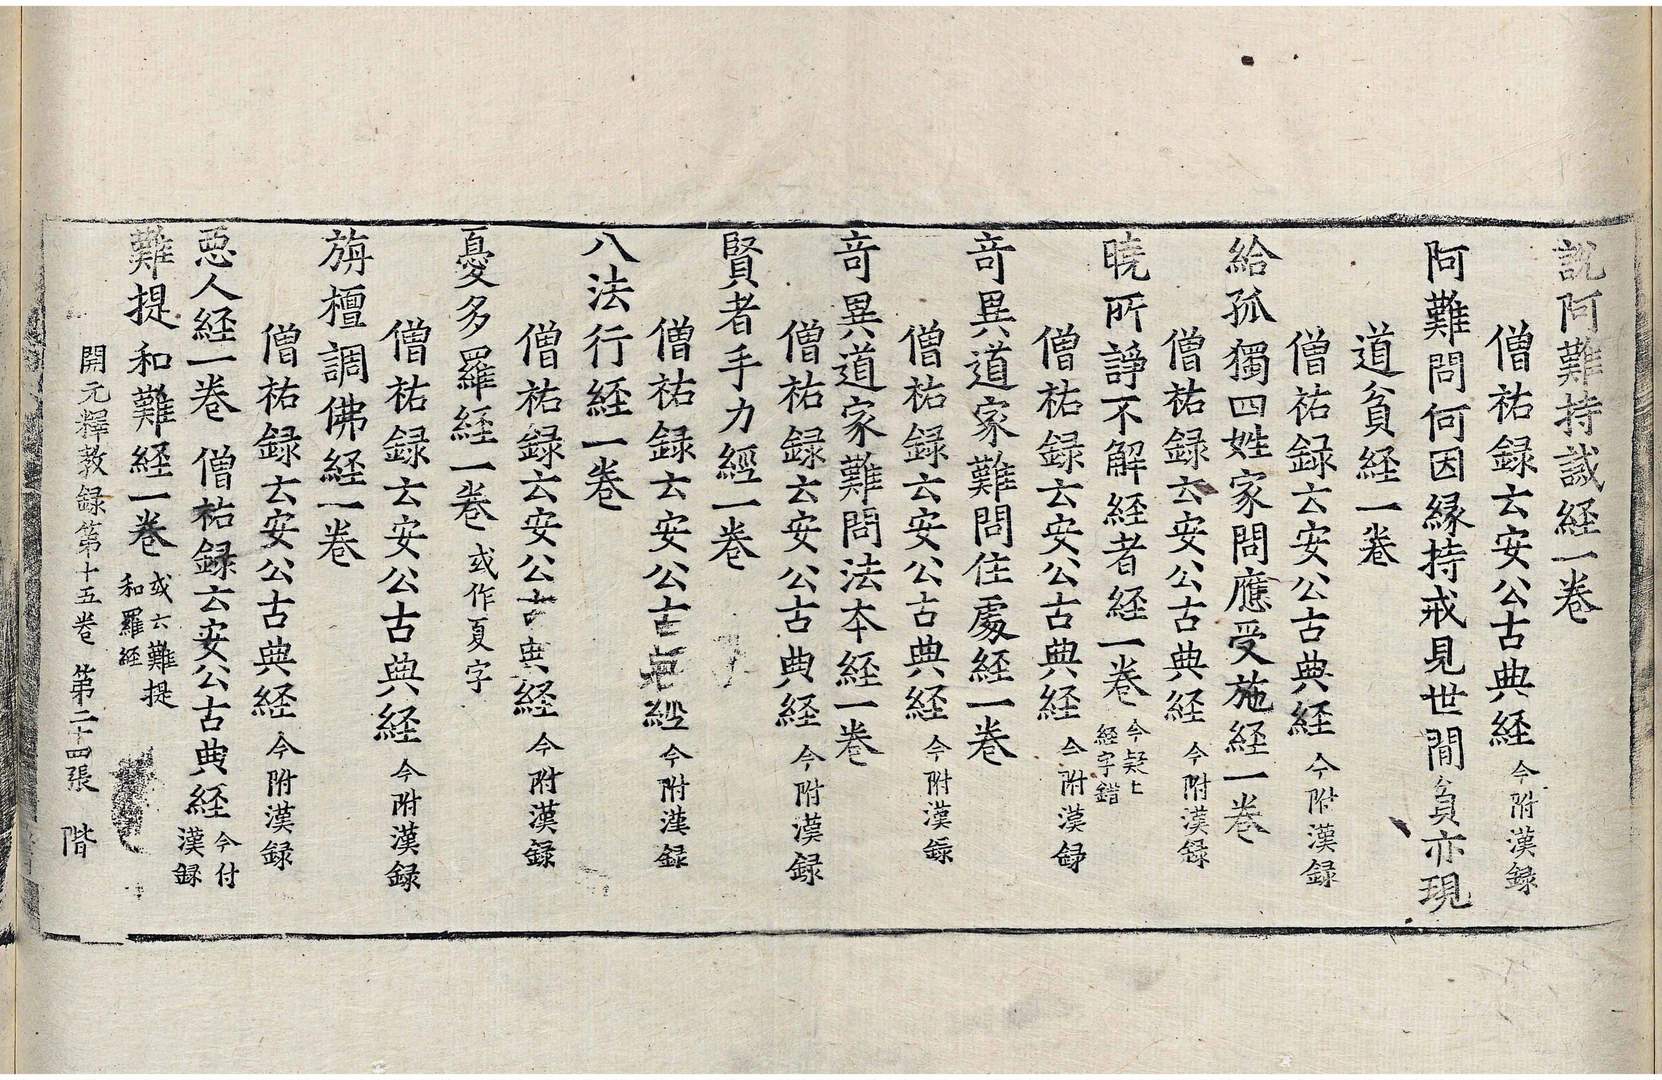 說阿難持誡経一卷
僧祐録云安公古典経 今附漢録
阿難問何因縁持戒見世間貧亦現
道貧経一卷
僧祐録云安公古典経 今附漢録
給孤獨四姓家問應受施経一卷
僧祐録云安公古典経 今附漢録
曉所諍不解経者経一卷 今疑上
経字錯
僧祐録云安公古典経 今附漢録
竒異道家難問住處経一卷
僧祐録云安公古典経 今附漢録
竒異道家難問法本経一卷
僧祐録云安公古典経 今附漢録
賢者手力經一卷
僧祐録云安公古典経 今附漢録
八法行経一卷
僧祐録云安公古典経 今附漢録
憂多羅経一卷 或作夏字
僧祐録云安公古典経 今附漢録
旃檀調佛経一卷
僧祐録云安公古典経 今附漢録
惡人経一卷 僧祐録云安公古典経 今付
漢録
難提和難経一卷 或云難提
和羅経
開元釋教録第十五卷 第二十四張 階